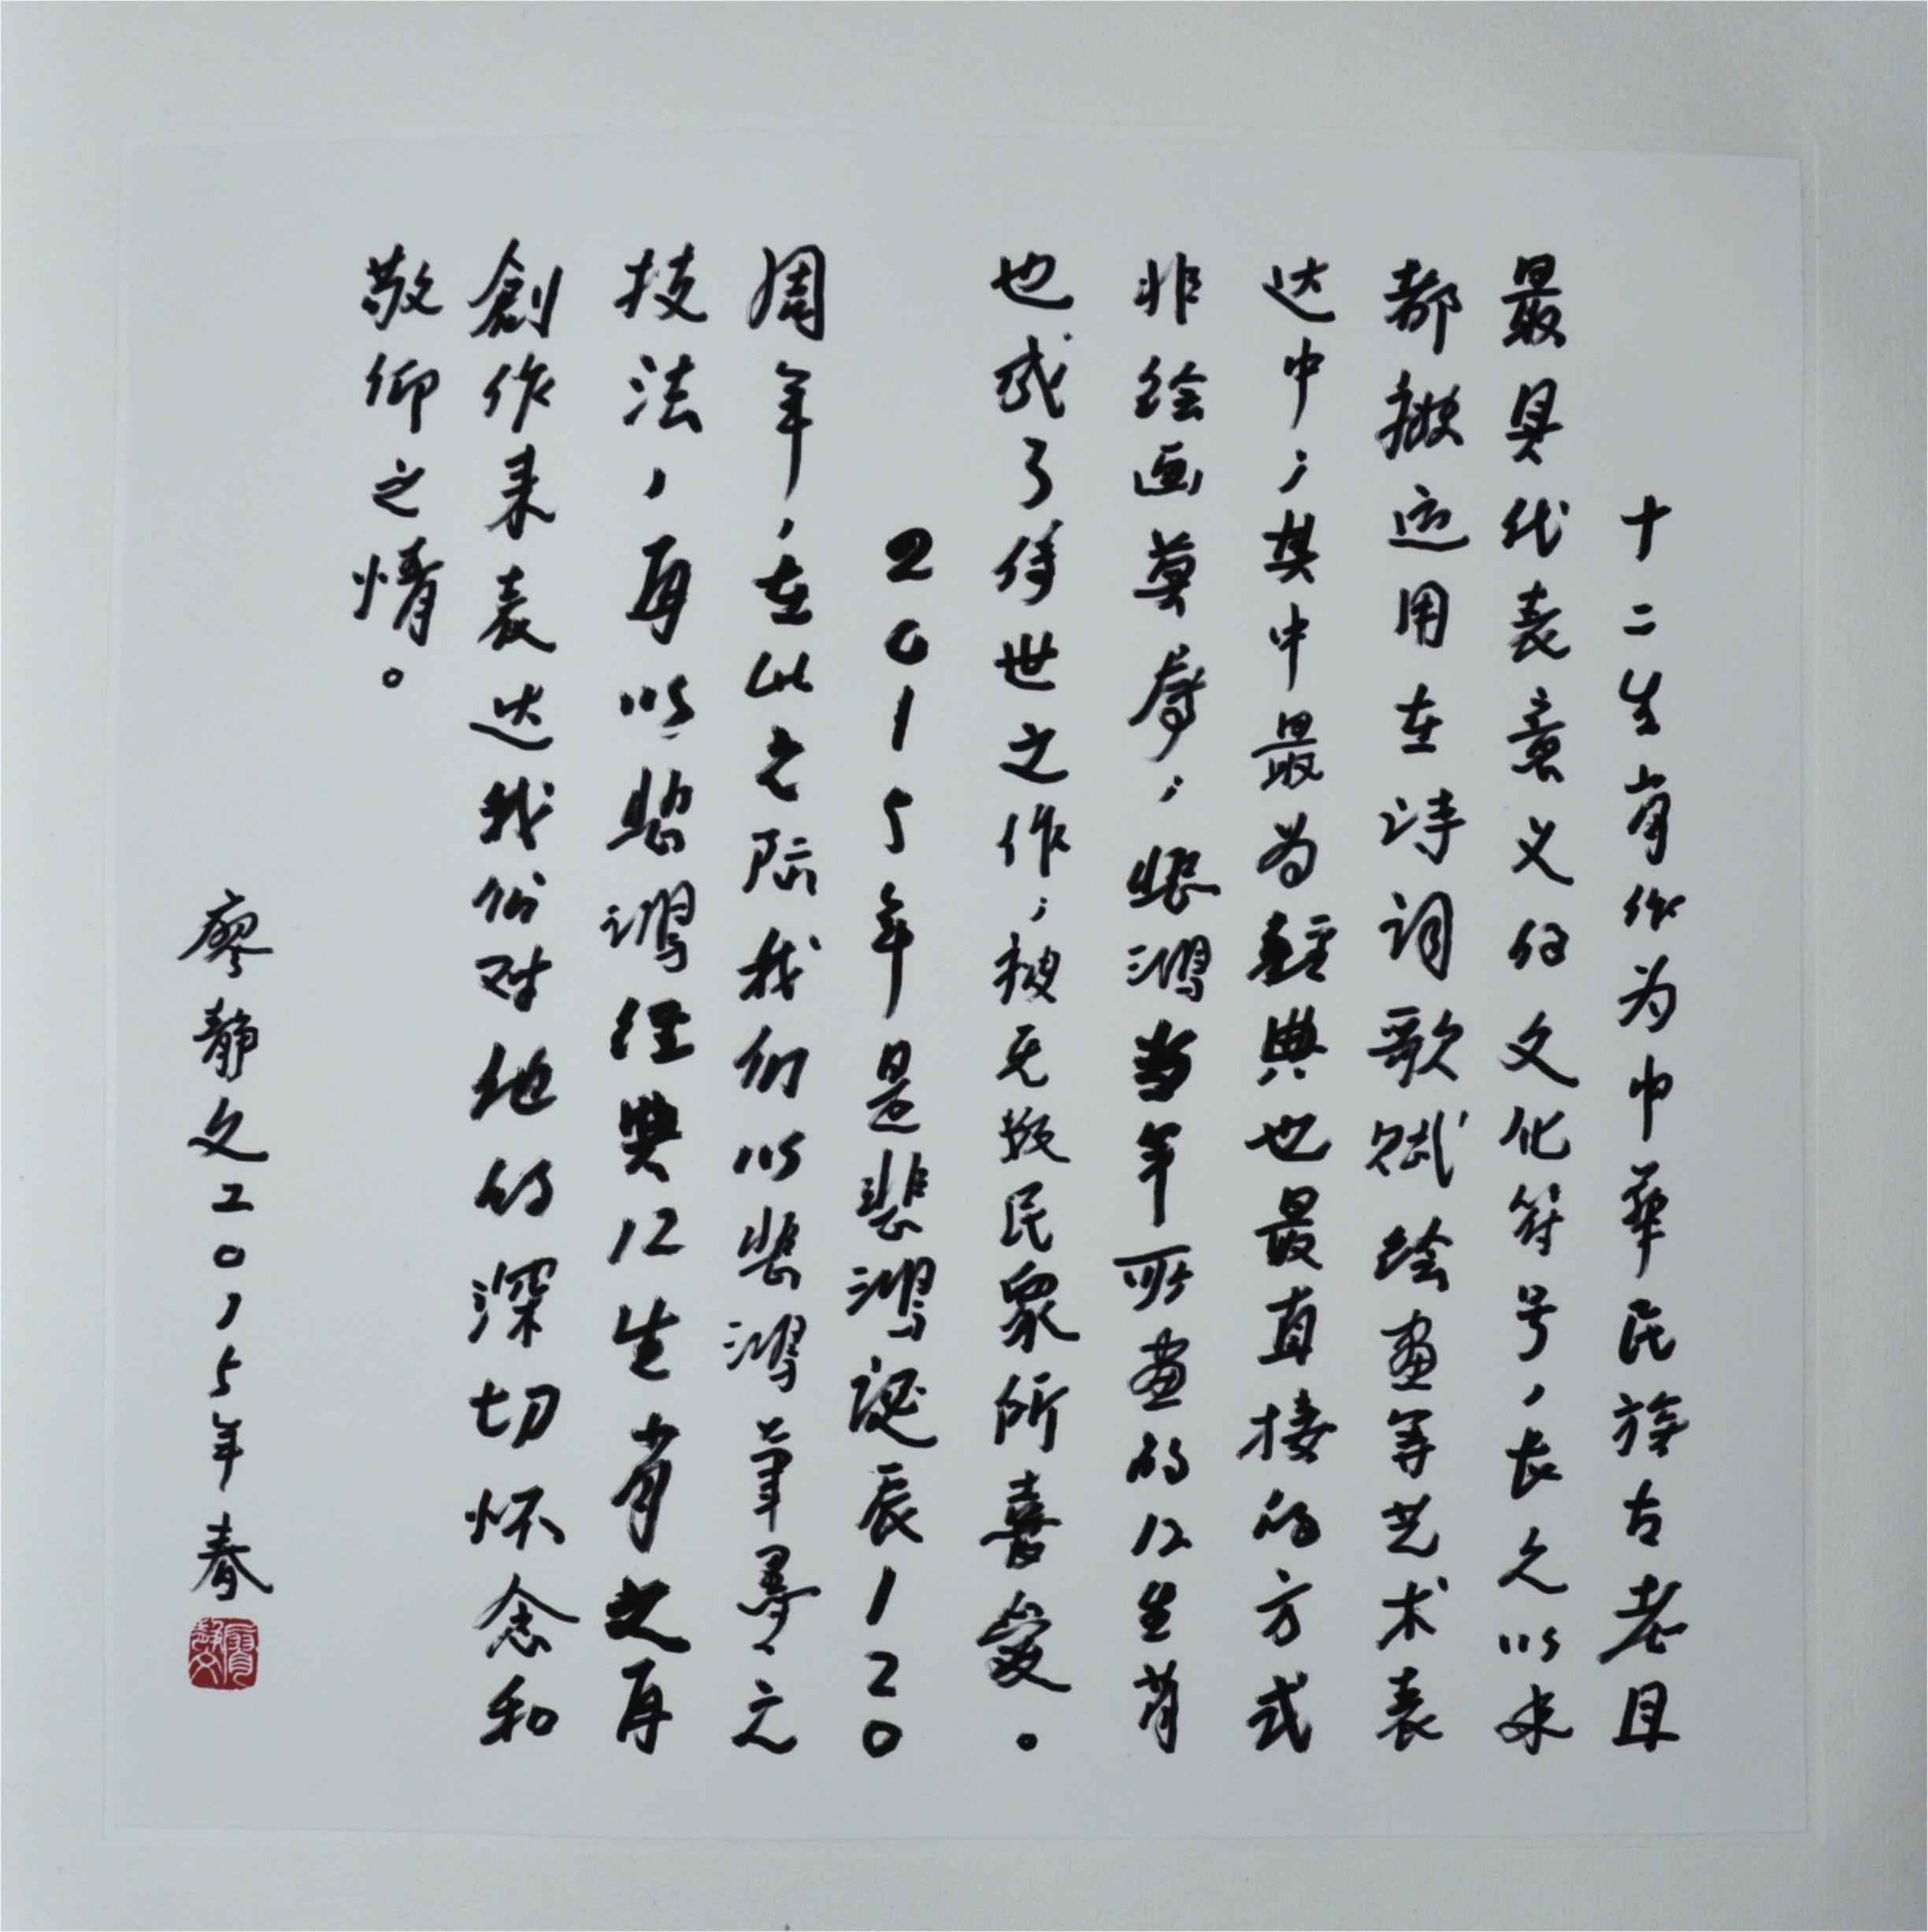 十二生肖作为中华民族古老且
最具代表意义的文化符号,长久以来
都被运用在诗词歌赋绘画等艺术表
达中;其中最为经典也最直接的方式
非绘画莫属;悲鸿当年所画的12生肖
也成了传世之作;被无数民众所喜爱。
2015年是悲鸿诞辰120
周年,在此之际我们以悲鸿笔墨之
技法,再以悲鸿经典12生肖之再
創作来表达我们对他的深切怀念和
敬仰之情。
廖静文二015年春